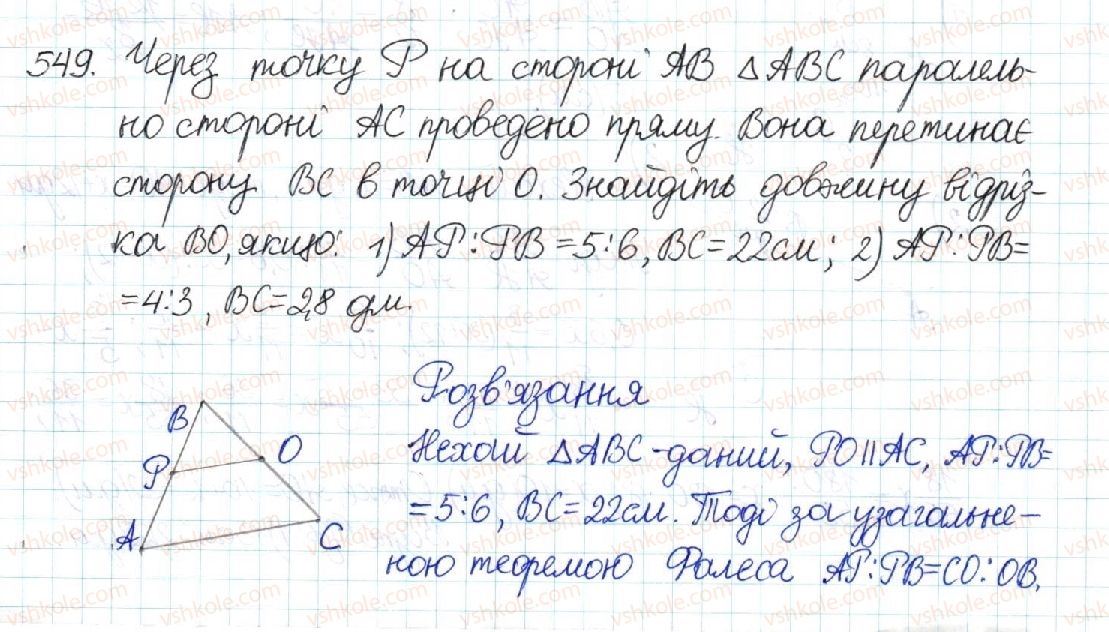 549. Через точку P на стороні AB △ABC паралель-
но стороні AC проведено пряму. Вона перетинає
сторону BC в точці O. Знайдіть довжину відріз-
ка BO, якщо: 1) AP:PB=5:6, BC=22см; 2) AP:PB=
=4:3, BC=2,8 дм.
Розв'язання
B
O
P
A
C
Нехай △ABC-даний, PO||AC, AP:PB=
=5:6, BC=22см. Тоді за узагальне-
ною теоремою Фалеса AP:PB=CO:OB,
vshkole.com